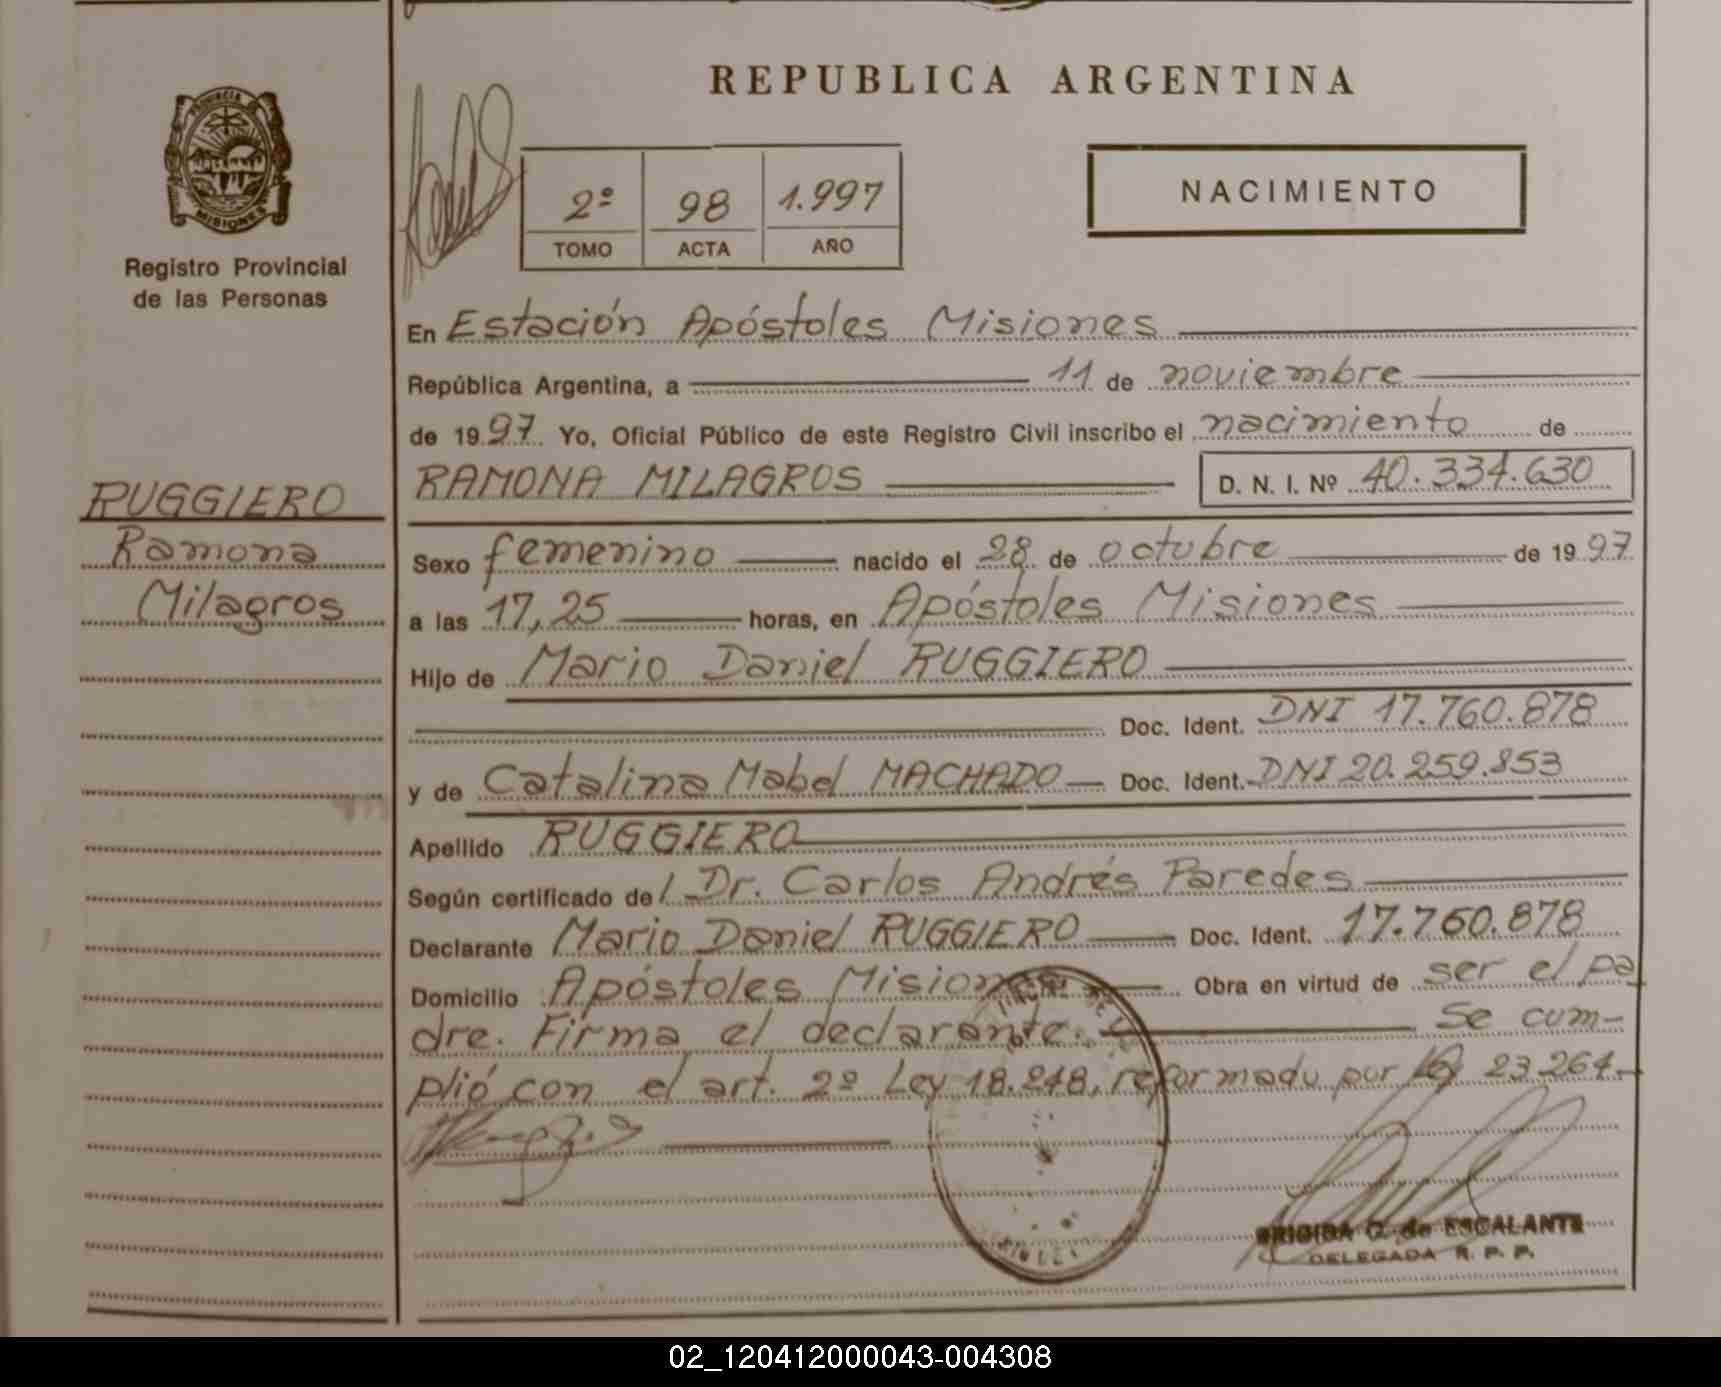 REPUBLICA ARGENTINA
PROVINCIA DE
MISIONES
Registro Provincial
de las Personas
2º 98 1.997
TOMO ACTA AÑO
NACIMIENTO
En Estación Apóstoles Misiones
República Argentina, a 11 de noviembre
de 1997. Yo, Oficial Público de este Registro Civil inscribo el nacimiento de
RAMONA MILAGROS D. N. I. Nº 40.334.630
RUGGIERO
Ramona
Milagros
Sexo femenino nacido el 28 de octubre de 1997
a las 17,25 horas, en Apóstoles Misiones
Hijo de Mario Daniel RUGGIERO
Doc. Ident. DNI 17.760.878
y de Catalina Mabel MACHADO Doc. Ident. DNI 20.259.853
Apellido RUGGIERO
Según certificado del Dr. Carlos Andrés Paredes
Declarante Mario Daniel RUGGIERO Doc. Ident. 17.760.878
Domicilio Apóstoles Misiones Obra en virtud de ser el pa
dre. Firma el declarante. Se cum-
plió con el art. 2º Ley 18.248, reformado por Ley 23.264.-
BRIGIDA G. de ESCALANTE
DELEGADA R. P. P.
02_120412000043-004308